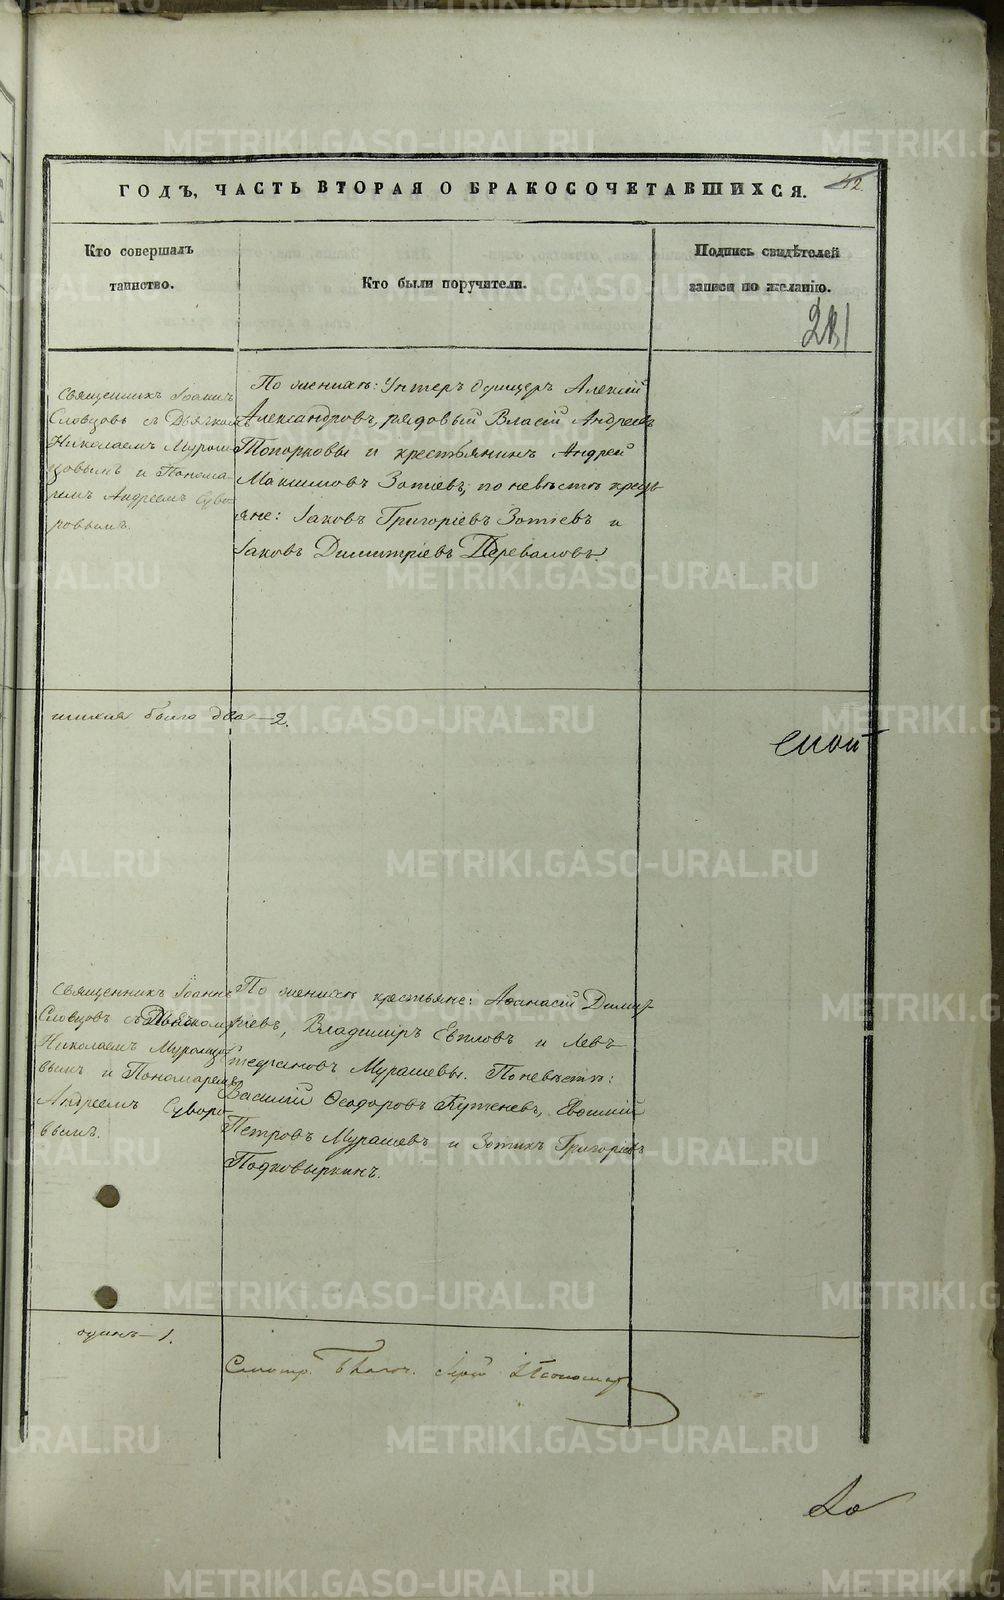 ГОДЪ, ЧАСТЬ ВТОРАЯ О БРАКОСОЧЕТАВШИХСЯ.
42
Кто совершалъ
таинство.
Кто были поручители.
Подпись свидѣтелей
записи по желанію.
221
Священникъ Іоаннъ
Словцовъ съ Дьячкомъ
Николаемъ Муром-
цовымъ и Понома-
ремъ Андреемъ Суво-
ровымъ.
По женихѣ: Унтеръ Офицеръ Алексій
Александровъ, рядовый Власій Андреевъ
Топорковы и крестьянинъ Андрей
Максимовъ Зотѣевъ; по невѣстѣ кресть-
яне: Іаковъ Григоріевъ Зотѣевъ и
Іаковъ Димитріевъ Переваловъ.
было два—2.
Священникъ Іоаннъ
Словцовъ съ Дьячкомъ
Николаемъ Муромцо-
вымъ и Пономаремъ
Андреемъ Суворо-
вымъ.
По женихѣ крестьяне: Аѳанасій Димит-
ріевъ, Владиміръ Евпловъ и Левъ
Стефановъ Мурашевы. По невѣстѣ:
Василій Ѳеодоровъ Кутеневъ, Евѳимій
Петровъ Мурашевъ и Зотикъ Григоріевъ
Подковыркинъ.
одинъ—1.
METRIKI.GASO-URAL.RU